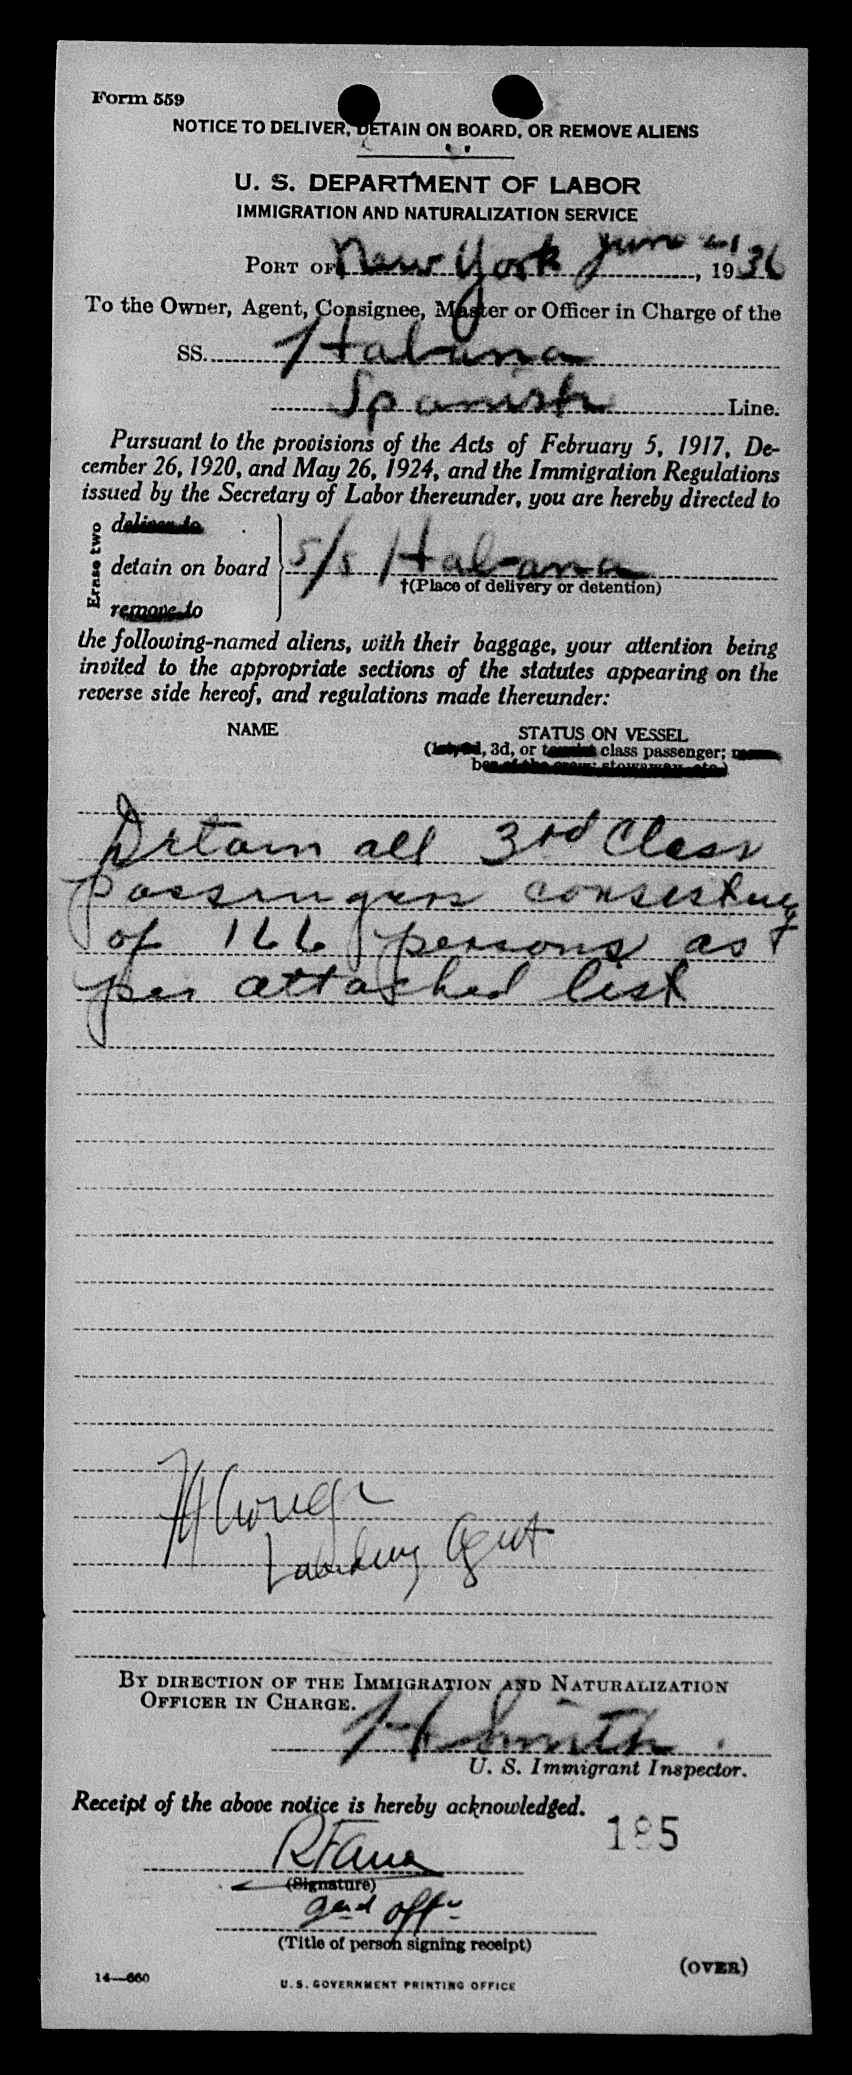 Form 559
NOTICE TO DELIVER, DETAIN ON BOARD, OR REMOVE ALIENS
U. S. DEPARTMENT OF LABOR
IMMIGRATION AND NATURALIZATION SERVICE
PORT OF New York June , 1936
To the Owner, Agent, Consignee, Master or Officer in Charge of the
SS. Habana
Spanish Line.
Pursuant to the provisions of the Acts of February 5, 1917, De-
cember 26, 1920, and May 26, 1924, and the Immigration Regulations
issued by the Secretary of Labor thereunder, you are hereby directed to
Erase two
deliver to
detain on board S/S Habana
†(Place of delivery or detention)
remove to
the following-named aliens, with their baggage, your attention being
invited to the appropriate sections of the statutes appearing on the
reverse side hereof, and regulations made thereunder:
NAME
STATUS ON VESSEL
(1st, 2d, 3d, or tourist class passenger; mem-
ber of the crew; stowaway, etc.)
Detain all 3rd Class
passengers consisting
of 166 persons as
per attached list
Agent
BY DIRECTION OF THE IMMIGRATION AND NATURALIZATION
OFFICER IN CHARGE.
H Smith
U. S. Immigrant Inspector.
Receipt of the above notice is hereby acknowledged.
185
(Signature)
(Title of person signing receipt)
(OVER)
14—660
U. S. GOVERNMENT PRINTING OFFICE